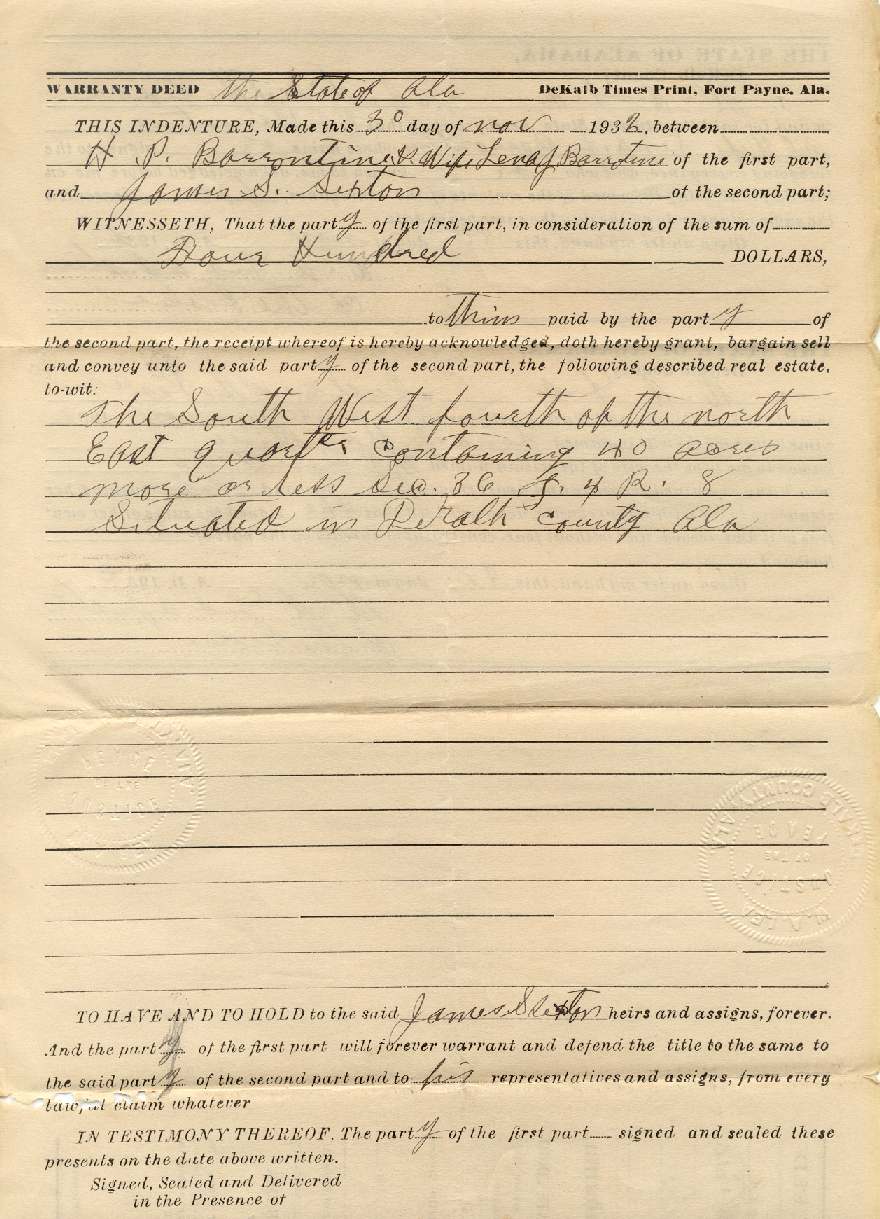 WARRANTY DEED The State of Ala DeKalb Times Print, Fort Payne, Ala.
THIS INDENTURE, Made this 30 day of nov 1932, between
H. P. Barrontine & Wife Lena J Barrtine of the first part,
and James S. Sexton of the second part;
WITNESSETH, That the party of the first part, in consideration of the sum of
Hour Hundred DOLLARS,
to thim paid by the party of
the second part, the receipt whereof is hereby acknowledged, doth hereby grant, bargain sell
and convey unto the said party of the second part, the following described real estate,
to-wit:
The South West fourth of the north
East quarter containing 40 acres
more or less Sec. 36 T. 4 R. 8
Situated in DeKalb county Ala
TO HAVE AND TO HOLD to the said James Sexton heirs and assigns, forever.
And the party of the first part will forever warrant and defend the title to the same to
the said party of the second part and to his representatives and assigns, from every
lawful claim whatever
IN TESTIMONY THEREOF. The party of the first part signed and sealed these
presents on the date above written.
Signed, Sealed and Delivered
in the Presence of